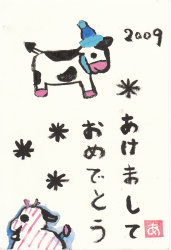 2009
あけまして
おめでとう
あ